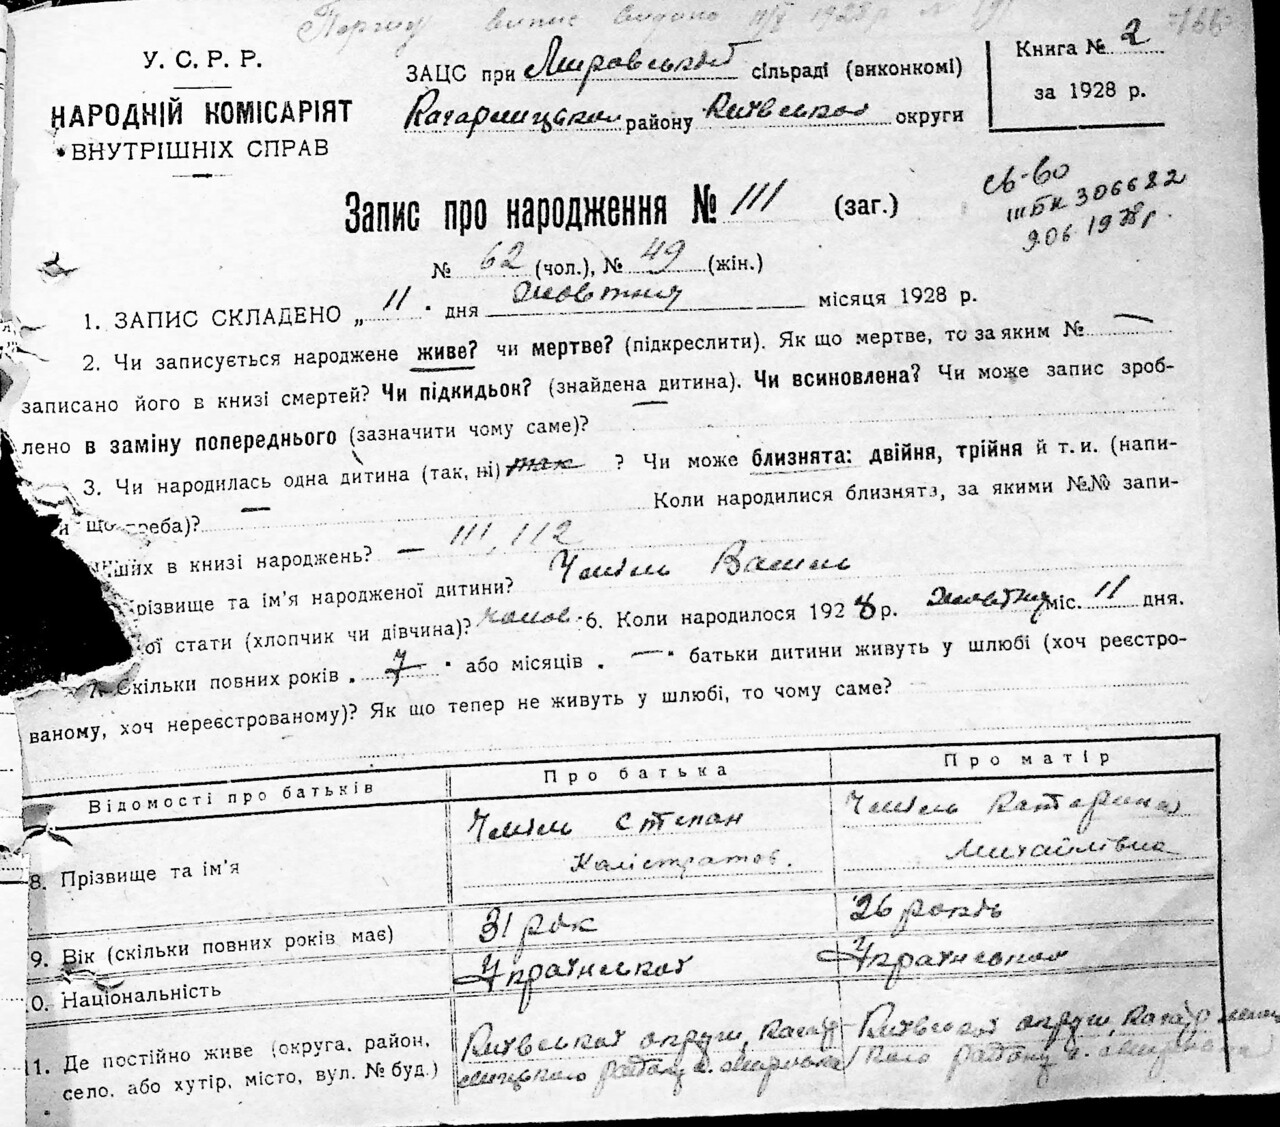 Першу випис видано 11/X 1928 р. №
У. С. Р. Р.
НАРОДНІЙ КОМІСАРІЯТ
ВНУТРІШНІХ СПРАВ
ЗАЦС при Мировській сільраді (виконкомі)
Кагарлицького району Київської округи
Книга № 2
за 1928 р.
Запис про народження № 111 (заг.)
св-во
ШБК 306682
9.06.1978г.
№ 62 (чол.), № 49 (жін.)
1. ЗАПИС СКЛАДЕНО „ 11 " дня Жовтня місяця 1928 р.
2. Чи записується народжене живе? чи мертве? (підкреслити). Як що мертве, то за яким № —
записано його в книзі смертей? Чи підкидьок? (знайдена дитина). Чи всиновлена? Чи може запис зроб-
лено в заміну попереднього (зазначити чому саме)? —
3. Чи народилась одна дитина (так, ні) так ? Чи може близнята: двійня, трійня й т. и. (напи-
що треба)? — Коли народилися близнята, за якими №№ запи-
інших в книзі народжень? — 111, 112
різвище та ім'я народженої дитини? Чміль
ої стати (хлопчик чи дівчина)? чолов. 6. Коли народилося 1928 р. Жовтня міс. 11 дня.
7. Скільки повних років „ 7 " або місяців „ — " батьки дитини живуть у шлюбі (хоч реєстро-
ваному, хоч нереєстрованому)? Як що тепер не живуть у шлюбі, то чому саме?
Відомості про батьків Про батька Про матір
8. Прізвище та ім'я Чміль Степан Чміль Катерина
Калістратов. Михайлівна
9. Вік (скільки повних років має) 31 рік 26 років
0. Національність Української Української
11. Де постійно живе (округа, район, Київської округи, Кагар- Київської округи, Кагарлиць
село, або хутір, місто, вул. № буд.) лицького району с. Мирівка кого району с. Мирівка